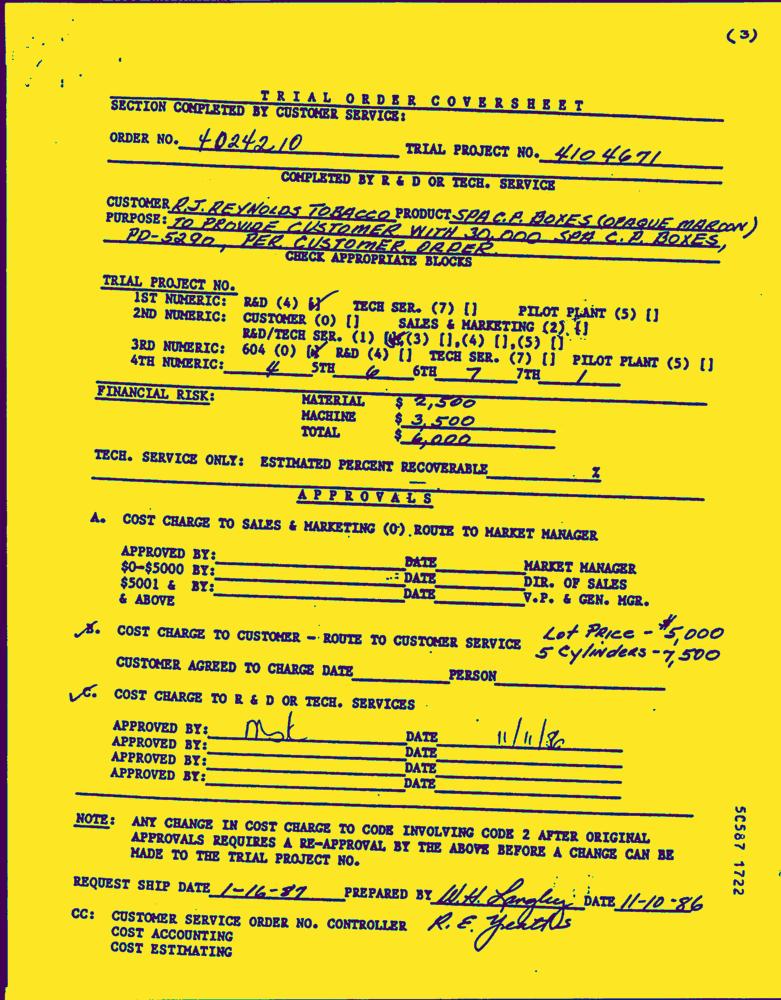 (3)
TRIAL ORDER COVERSHEET
SECTION COMPLETED BY CUSTOMER SERVICE:
ORDER NO. 4024210 TRIAL PROJECT NO. 4104671
COMPLETED BY R & D OR TECH. SERVICE
CUSTOMER R.J. REYNOLDS TOBACCO PRODUCT SPA C.P. BOXES (OPAQUE MAROON)
PURPOSE: TO PROVIDE CUSTOMER WITH 30,000 SPA C.P. BOXES,
PD-5290, PER CUSTOMER ORDER.
CHECK APPROPRIATE BLOCKS
TRIAL PROJECT NO.
1ST NUMERIC: R&D (4) [✓] TECH SER. (7) [] PILOT PLANT (5) []
2ND NUMERIC: CUSTOMER (0) [] SALES & MARKETING (2) []
R&D/TECH SER. (1) [✓] (3) [],(4) [],(5) []
3RD NUMERIC: 604 (0) [✓] R&D (4) [] TECH SER. (7) [] PILOT PLANT (5) []
4TH NUMERIC: 4 5TH 6 6TH 7 7TH 1
FINANCIAL RISK: MATERIAL $ 2,500
MACHINE $ 3,500
TOTAL $ 6,000
TECH. SERVICE ONLY: ESTIMATED PERCENT RECOVERABLE %
APPROVALS
A. COST CHARGE TO SALES & MARKETING (0) ROUTE TO MARKET MANAGER
APPROVED BY: DATE MARKET MANAGER
$0-$5000 BY: DATE DIR. OF SALES
$5001 & BY: DATE V.P. & GEN. MGR.
& ABOVE
B. COST CHARGE TO CUSTOMER - ROUTE TO CUSTOMER SERVICE Lot Price - $5,000
5 Cylinders - 7,500
CUSTOMER AGREED TO CHARGE DATE PERSON
✓C. COST CHARGE TO R & D OR TECH. SERVICES
APPROVED BY: DATE 11/11/86
APPROVED BY: DATE
APPROVED BY: DATE
APPROVED BY: DATE
NOTE: ANY CHANGE IN COST CHARGE TO CODE INVOLVING CODE 2 AFTER ORIGINAL
APPROVALS REQUIRES A RE-APPROVAL BY THE ABOVE BEFORE A CHANGE CAN BE
MADE TO THE TRIAL PROJECT NO.
REQUEST SHIP DATE 1-16-87 PREPARED BY W.H. Langley DATE 11-10-86
CC: CUSTOMER SERVICE ORDER NO. CONTROLLER R. E.
COST ACCOUNTING
COST ESTIMATING
5C587 1722